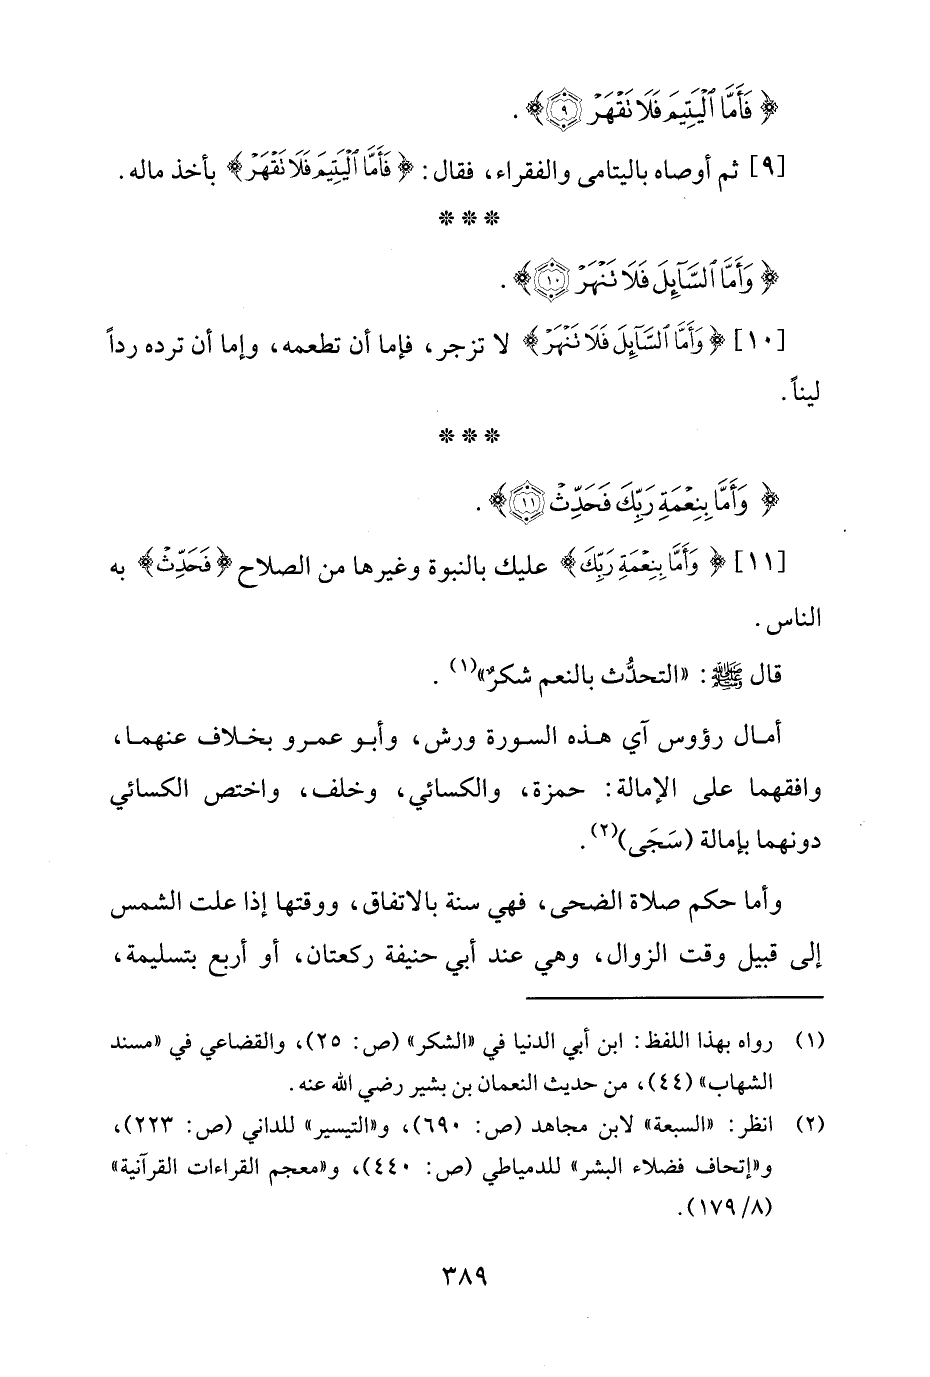 ﴿فَأَمَّا الْيَتِيمَ فَلَا تَقْهَرْ ٩﴾ .
[٩] ثم أوصاه باليتامى والفقراء، فقال: ﴿فَأَمَّا الْيَتِيمَ فَلَا تَقْهَرْ﴾ بأخذ ماله.
* * *
﴿وَأَمَّا السَّآئِلَ فَلَا تَنْهَرْ ١٠﴾ .
[١٠] ﴿وَأَمَّا السَّآئِلَ فَلَا تَنْهَرْ﴾ لا تزجر، فإما أن تطعمه، وإما أن ترده رداً
ليناً.
* * *
﴿وَأَمَّا بِنِعْمَةِ رَبِّكَ فَحَدِّثْ ١١﴾ .
[١١] ﴿وَأَمَّا بِنِعْمَةِ رَبِّكَ﴾ عليك بالنبوة وغيرها من الصلاح ﴿فَحَدِّثْ﴾ به
الناس.
قال ﷺ: «التحدُّث بالنعم شكرٌ»(١) .
أمال رؤوس آي هذه السورة ورش، وأبو عمرو بخلاف عنهما،
وافقهما على الإمالة: حمزة، والكسائي، وخلف، واختص الكسائي
دونهما بإمالة (سَجَى)(٢) .
وأما حكم صلاة الضحى، فهي سنة بالاتفاق، ووقتها إذا علت الشمس
إلى قبيل وقت الزوال، وهي عند أبي حنيفة ركعتان، أو أربع بتسليمة،
(١) رواه بهذا اللفظ: ابن أبي الدنيا في «الشكر» (ص: ٢٥)، والقضاعي في «مسند
الشهاب» (٤٤)، من حديث النعمان بن بشير رضي الله عنه.
(٢) انظر: «السبعة» لابن مجاهد (ص: ٦٩٠)، و«التيسير» للداني (ص: ٢٢٣)،
و«إتحاف فضلاء البشر» للدمياطي (ص: ٤٤٠)، و«معجم القراءات القرآنية»
(٨/ ١٧٩).
٣٨٩